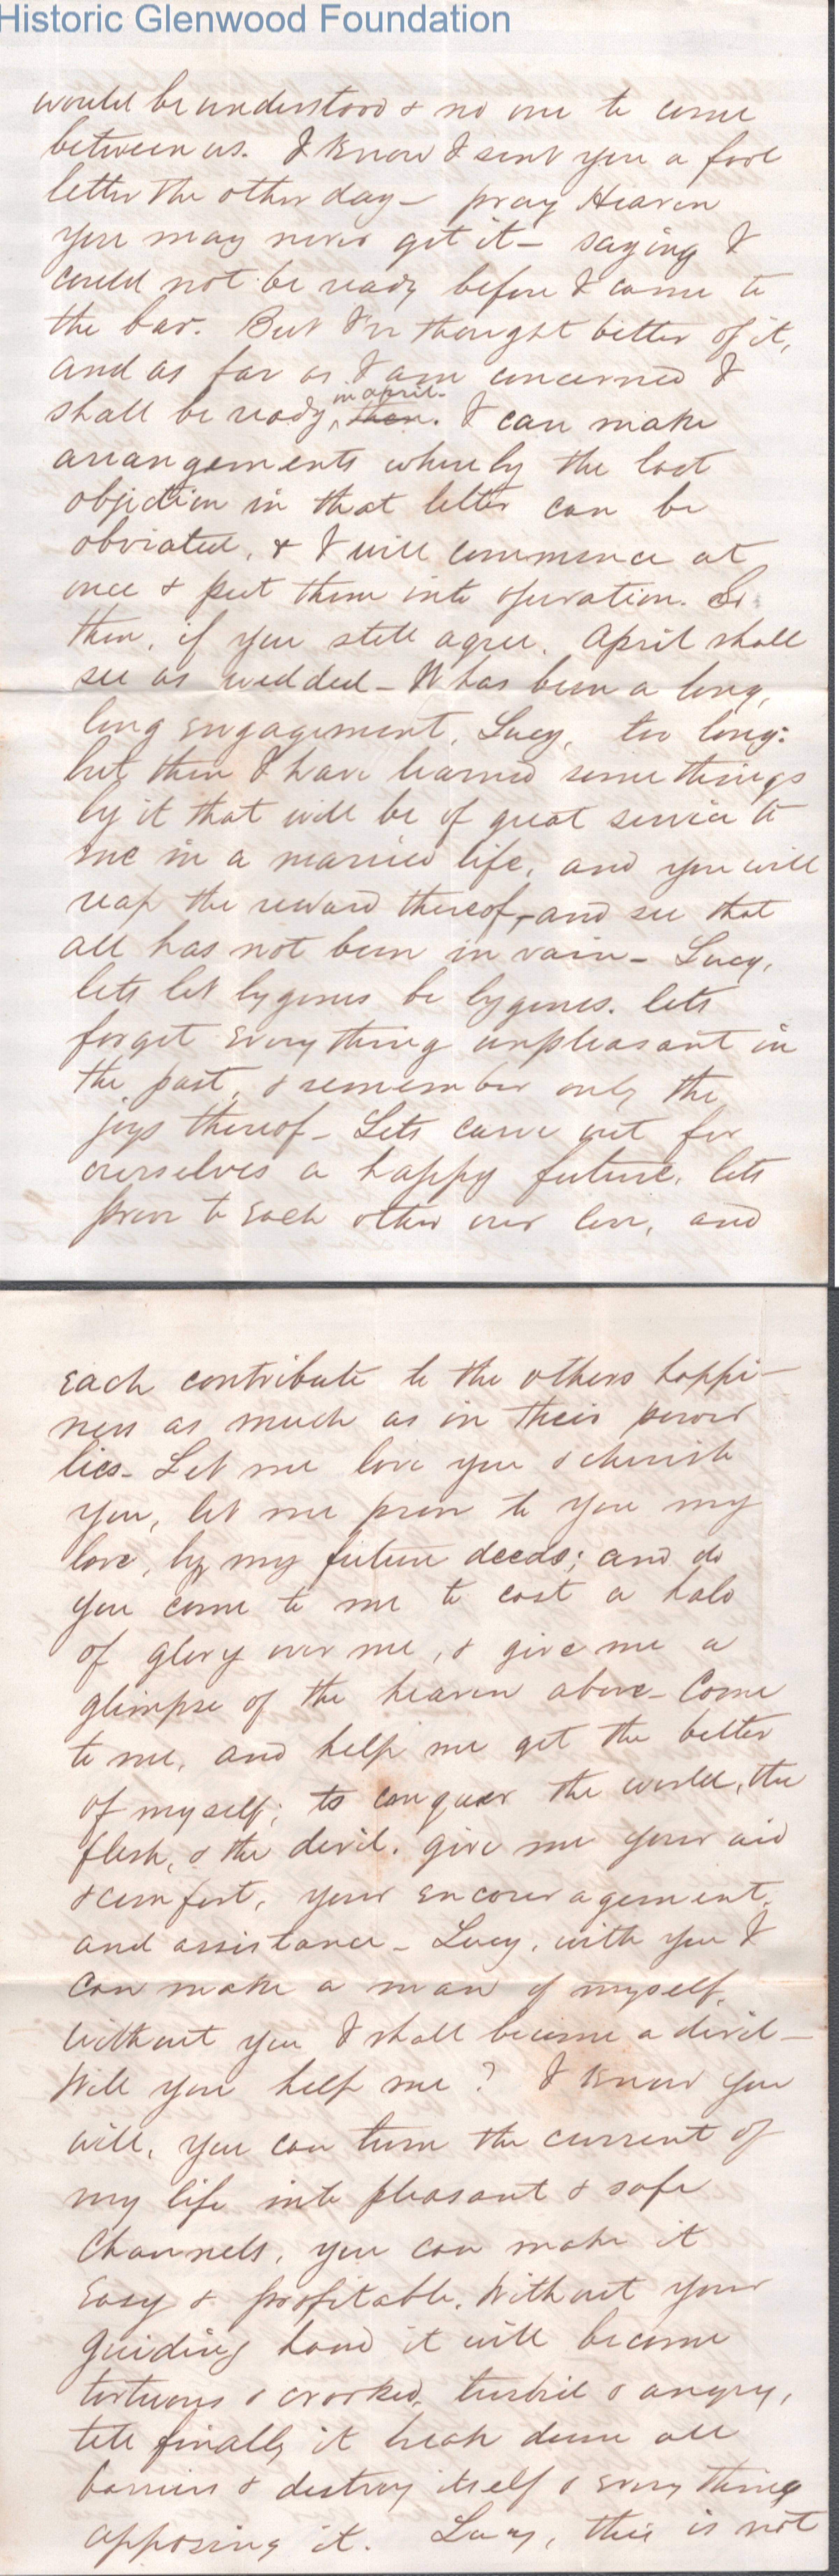 Historic Glenwood Foundation
would be understood & no one to come
between us. I know I sent you a fool
letter the other day – pray Heaven
you may never get it – saying I
could not be ready before I came to
the bar. But I've thought better of it,
and as far as I am concerned I
shall be ready, in april. then. I can make
arrangements whereby the last
objection in that letter can be
obviated, & I will commence at
once & put them into operation. So
then, if you still agree, April shall
see us wedded – It has been a long,
long engagement, Lucy, too long:
but then I have learned some things
by it that will be of great service to
me in a married life, and you will
reap the reward thereof, and see that
all has not been in vain – Lucy,
lets let bygones be bygones. lets
forget everything unpleasant in
the past, & remember only the
joys thereof – Lets carve out for
ourselves a happy future, lets
prove to each other our love, and
each contribute to the others happi-
ness as much as in their power
lies – Let me love you & cherish
you, let me prove to you my
love, by my future deeds; and do
you come to me to cast a halo
of glory over me, & give me a
glimpse of the heaven above – Come
to me, and help me get the better
of myself; to conquer the world, the
flesh, & the devil. give me your aid
& comfort, your encouragement,
and assistance – Lucy, with you I
can make a man of myself,
without you I shall become a devil –
Will you help me? I know you
will, you can turn the current of
my life into pleasant & safe
Channels, you can make it
Easy & profitable. Without your
guiding hand it will become
tortuous & crooked, turbid & angry,
till finally it break down all
barriers & destroy itself & everything
opposing it. Lucy, this is not